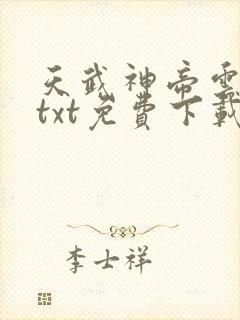 天武神帝雲
txt免費下載
李士祥